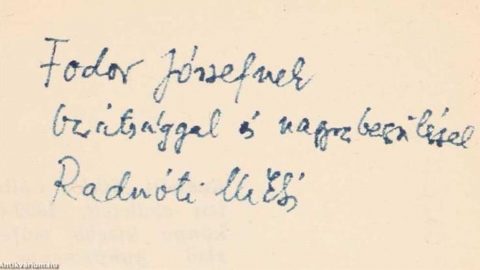 Fodor Józsefnek
barátsággal és nagyrabecsüléssel
Radnóti Miklós
Antikvarium.hu